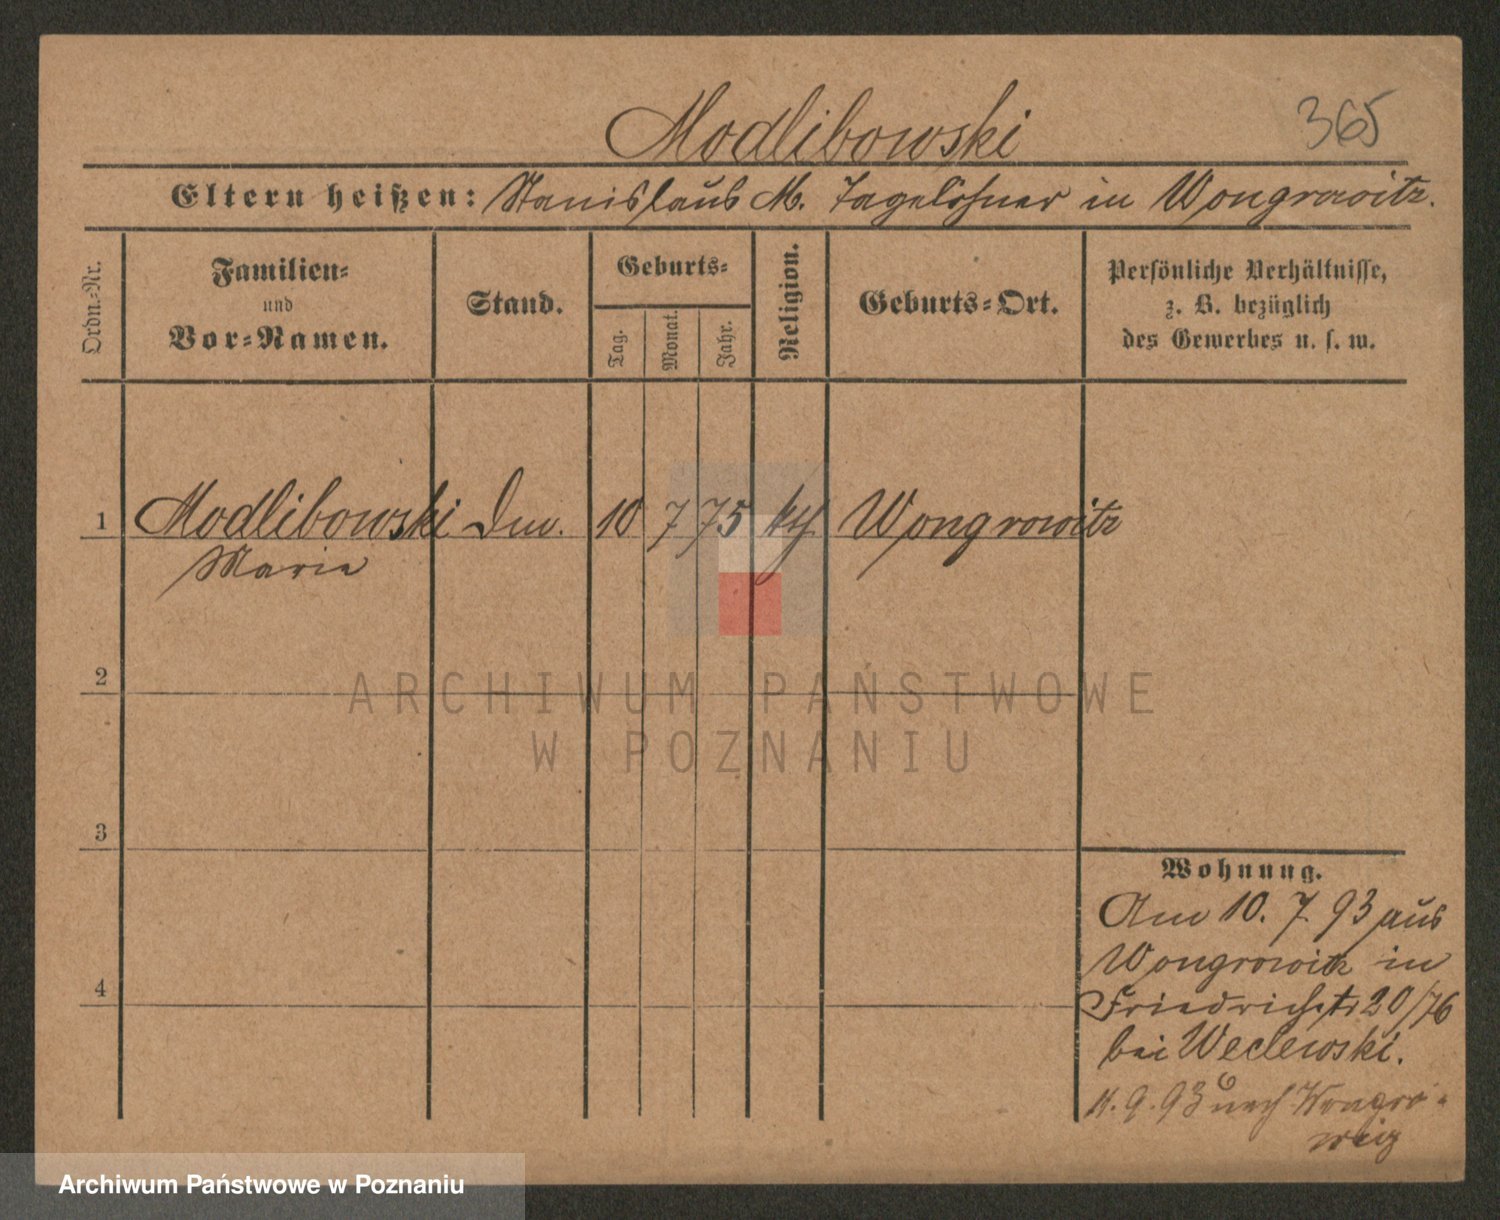 Modlibowski
365
Eltern heißen: Stanislaus M. Tagelöhner in Wongrowitz.
Ordn.-Nr.
Familien-
und
Vor-Namen.
Stand.
Geburts-
Tag.
Monat.
Jahr.
Religion.
Geburts-Ort.
Persönliche Verhältnisse,
z. B. bezüglich
des Gewerbes u. s. w.
1 Modlibowski 10 7 75 Wongrowitz
Marie
2
3
4
Wohnung.
Am 10. 7. 93 aus
Wongrowitz in
Friedrichstr 20/76
bei Weclewski.
11. 9. 93 nach Wongro-
witz
ARCHIWUM PAŃSTWOWE
W POZNANIU
Archiwum Państwowe w Poznaniu